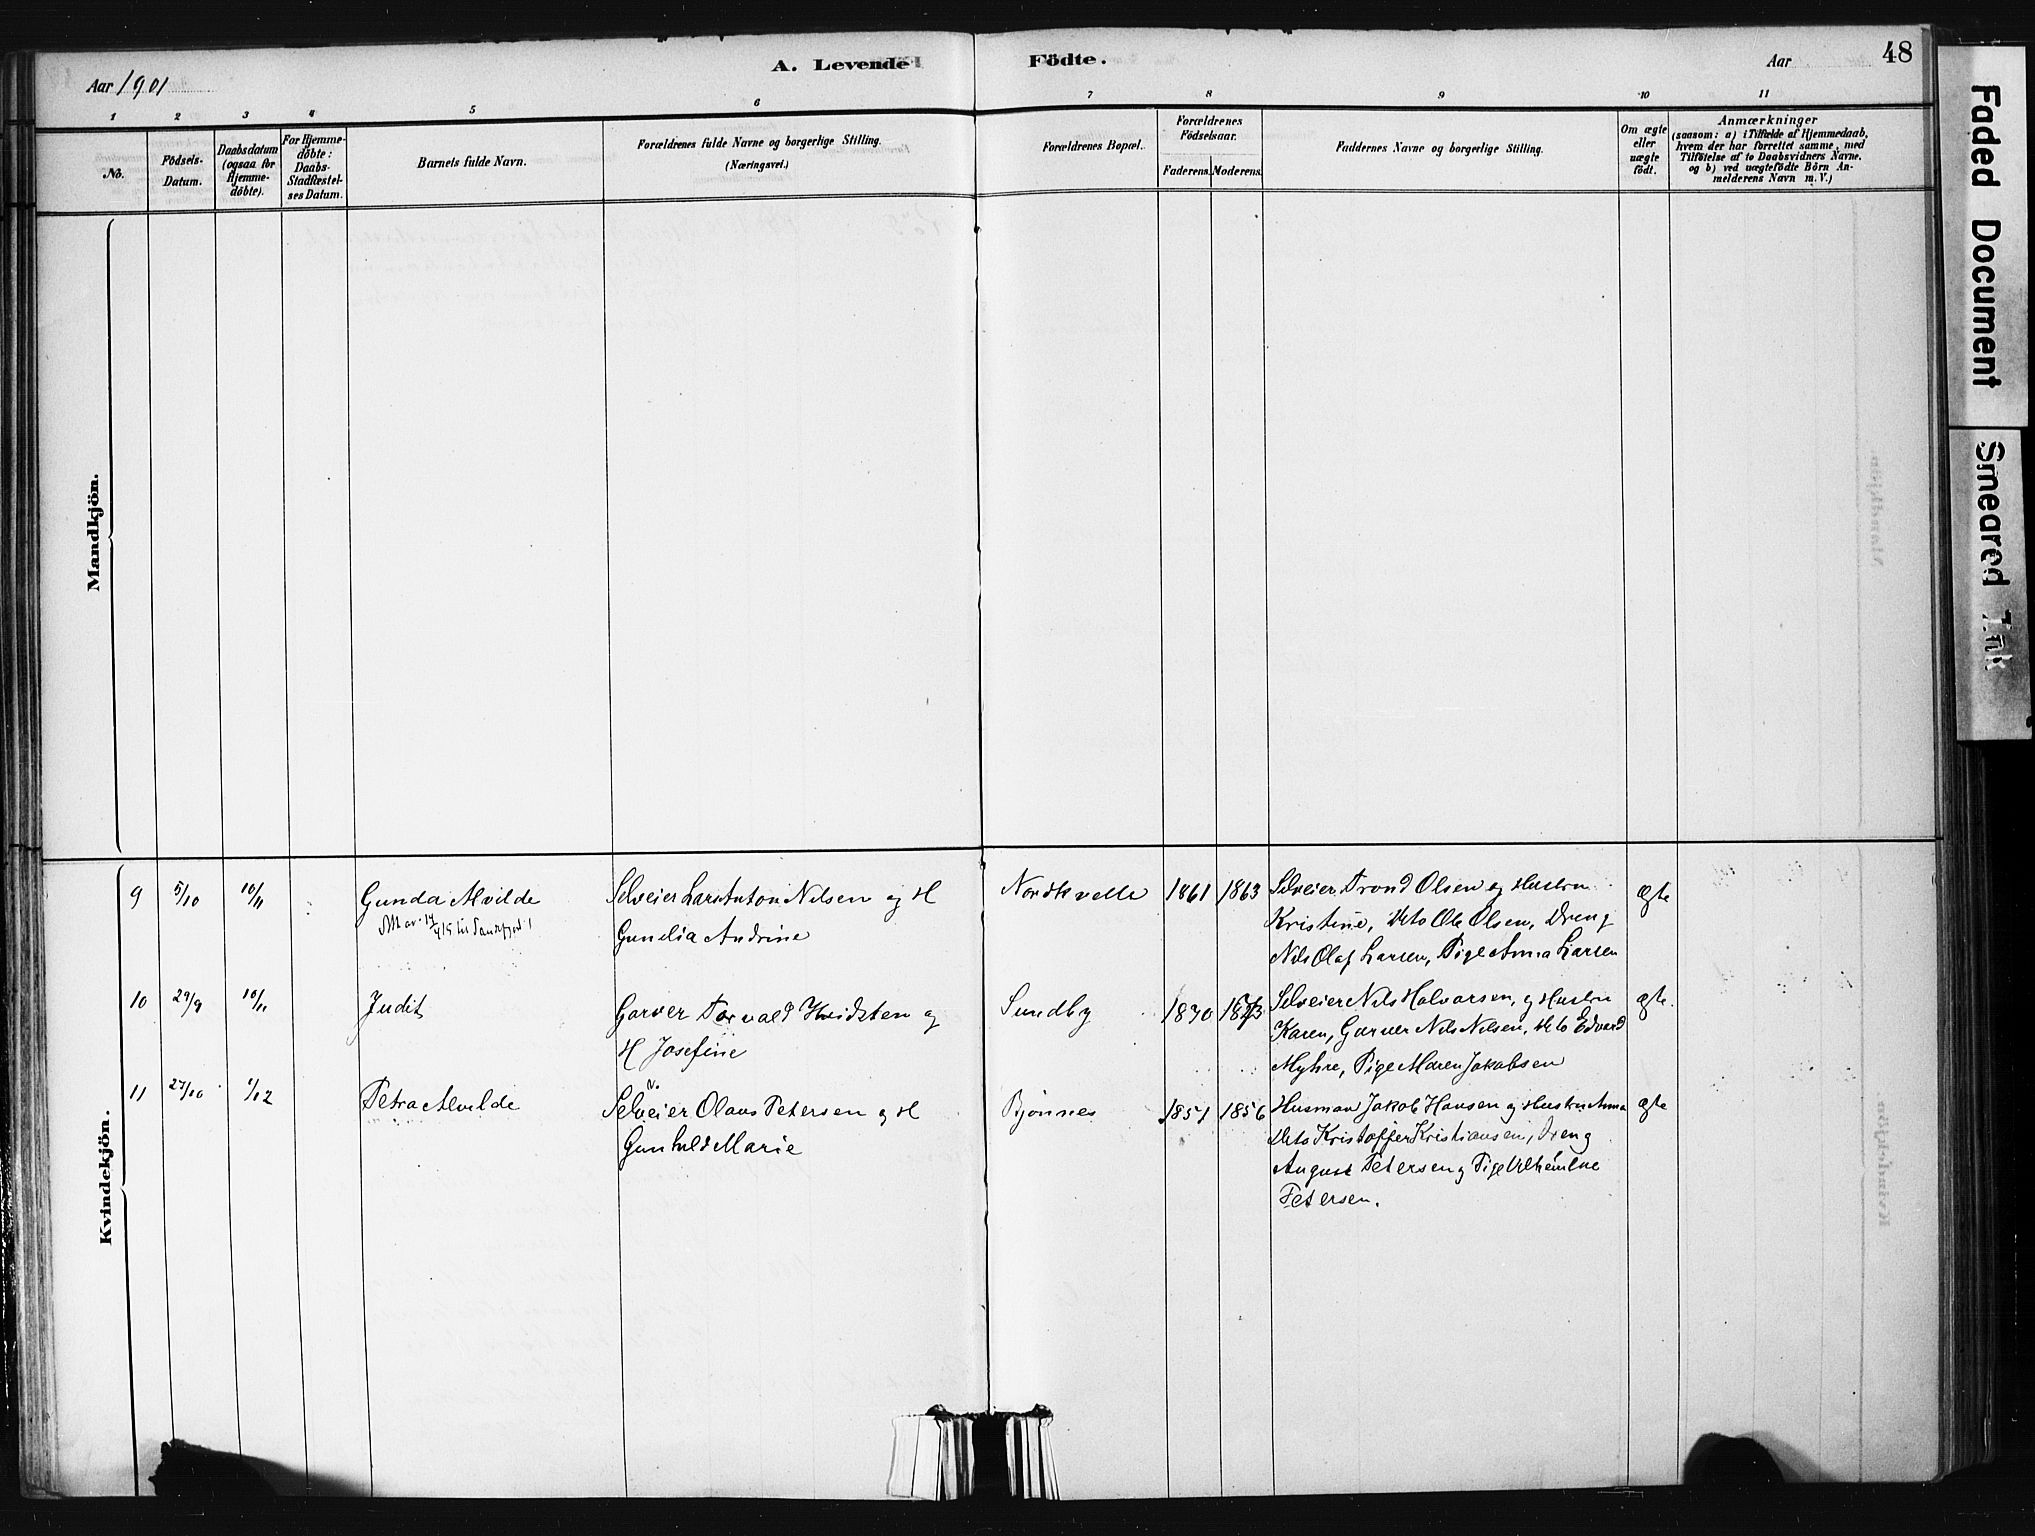 Aar 1901
A. Levende Födte.
Aar
48
1 2 3 4 5 6 7 8 9 10 11
No.
Födsels-Datum.
Daabsdatum (ogsaa for Hjemme-döbte).
For Hjemme-döbte: Daabs-Stadfæstel-ses Datum.
Barnets fulde Navn.
Forældrenes fulde Navne og borgerlige Stilling.
(Næringsvei.)
Forældrenes Bopæl.
Forældrenes Födselsaar.
Faderens. Moderens.
Faddernes Navne og borgerlige Stilling.
Om ægte eller uægte födt.
Anmærkninger
(saasom: a) i Tilfælde af Hjemmedaab,
hvem der har forrettet samme, med
Tilföielse af to Daabsvidners Navne,
og b) ved uægtefödte Börn An-
melderens Navn m. V.)
Mandkjön.
Kvindekjön.
9 5/10 10/11 Gunda Alvilde Selveier Lars Anton Nilsen og H Nordkvelle 1861 1863 Selveier Trond Olsen og Hustru ægte
Gunelia Andrine Kristine, Do Ole Olsen, Dreng
Nils Olaf Larsen, Pige Anna Larsen
10 29/9 10/11 Judit Garver Torvald Hvidsten og Sundby 1870 1873 Selveier Nils Halvorsen, og Hustru ægte.
H Josefine Karen, Garver Nils Nilsen, Edvard
Myhre, Pige Maren Jakobsen
11 27/10 1/12 Petra Alvilde Selveier Olaus Petersen og H Bjønnes 1851 1856 Husman Jakob Hansen og Hustru Anna ægte
Gunhild Marie Kristoffer Kristiansen, Dreng
August Petersen og Pige Vilhelmine
Petersen.
Faded Document
Smeared Ink